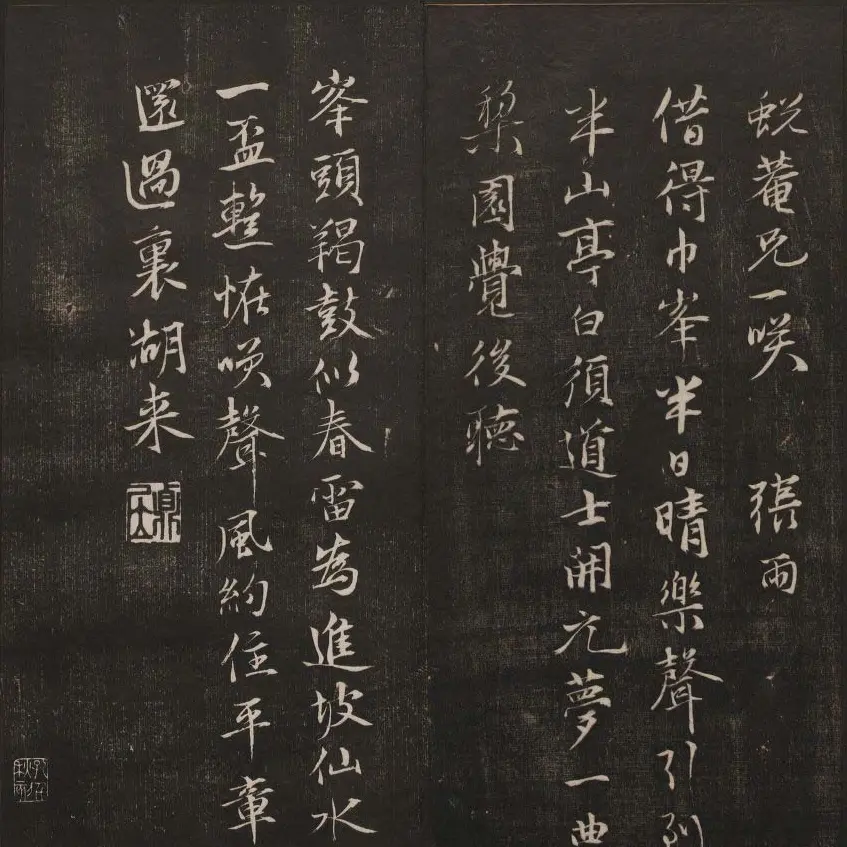 蛻菴兄一咲 張雨
借得巾峯半日晴樂聲引到
半山亭白須道士開元夢一曲
棃園覺後聴
峯頭羯鼓似春雷為進坡仙水
一盃整恠咲聲風約住平章
還過裏湖来